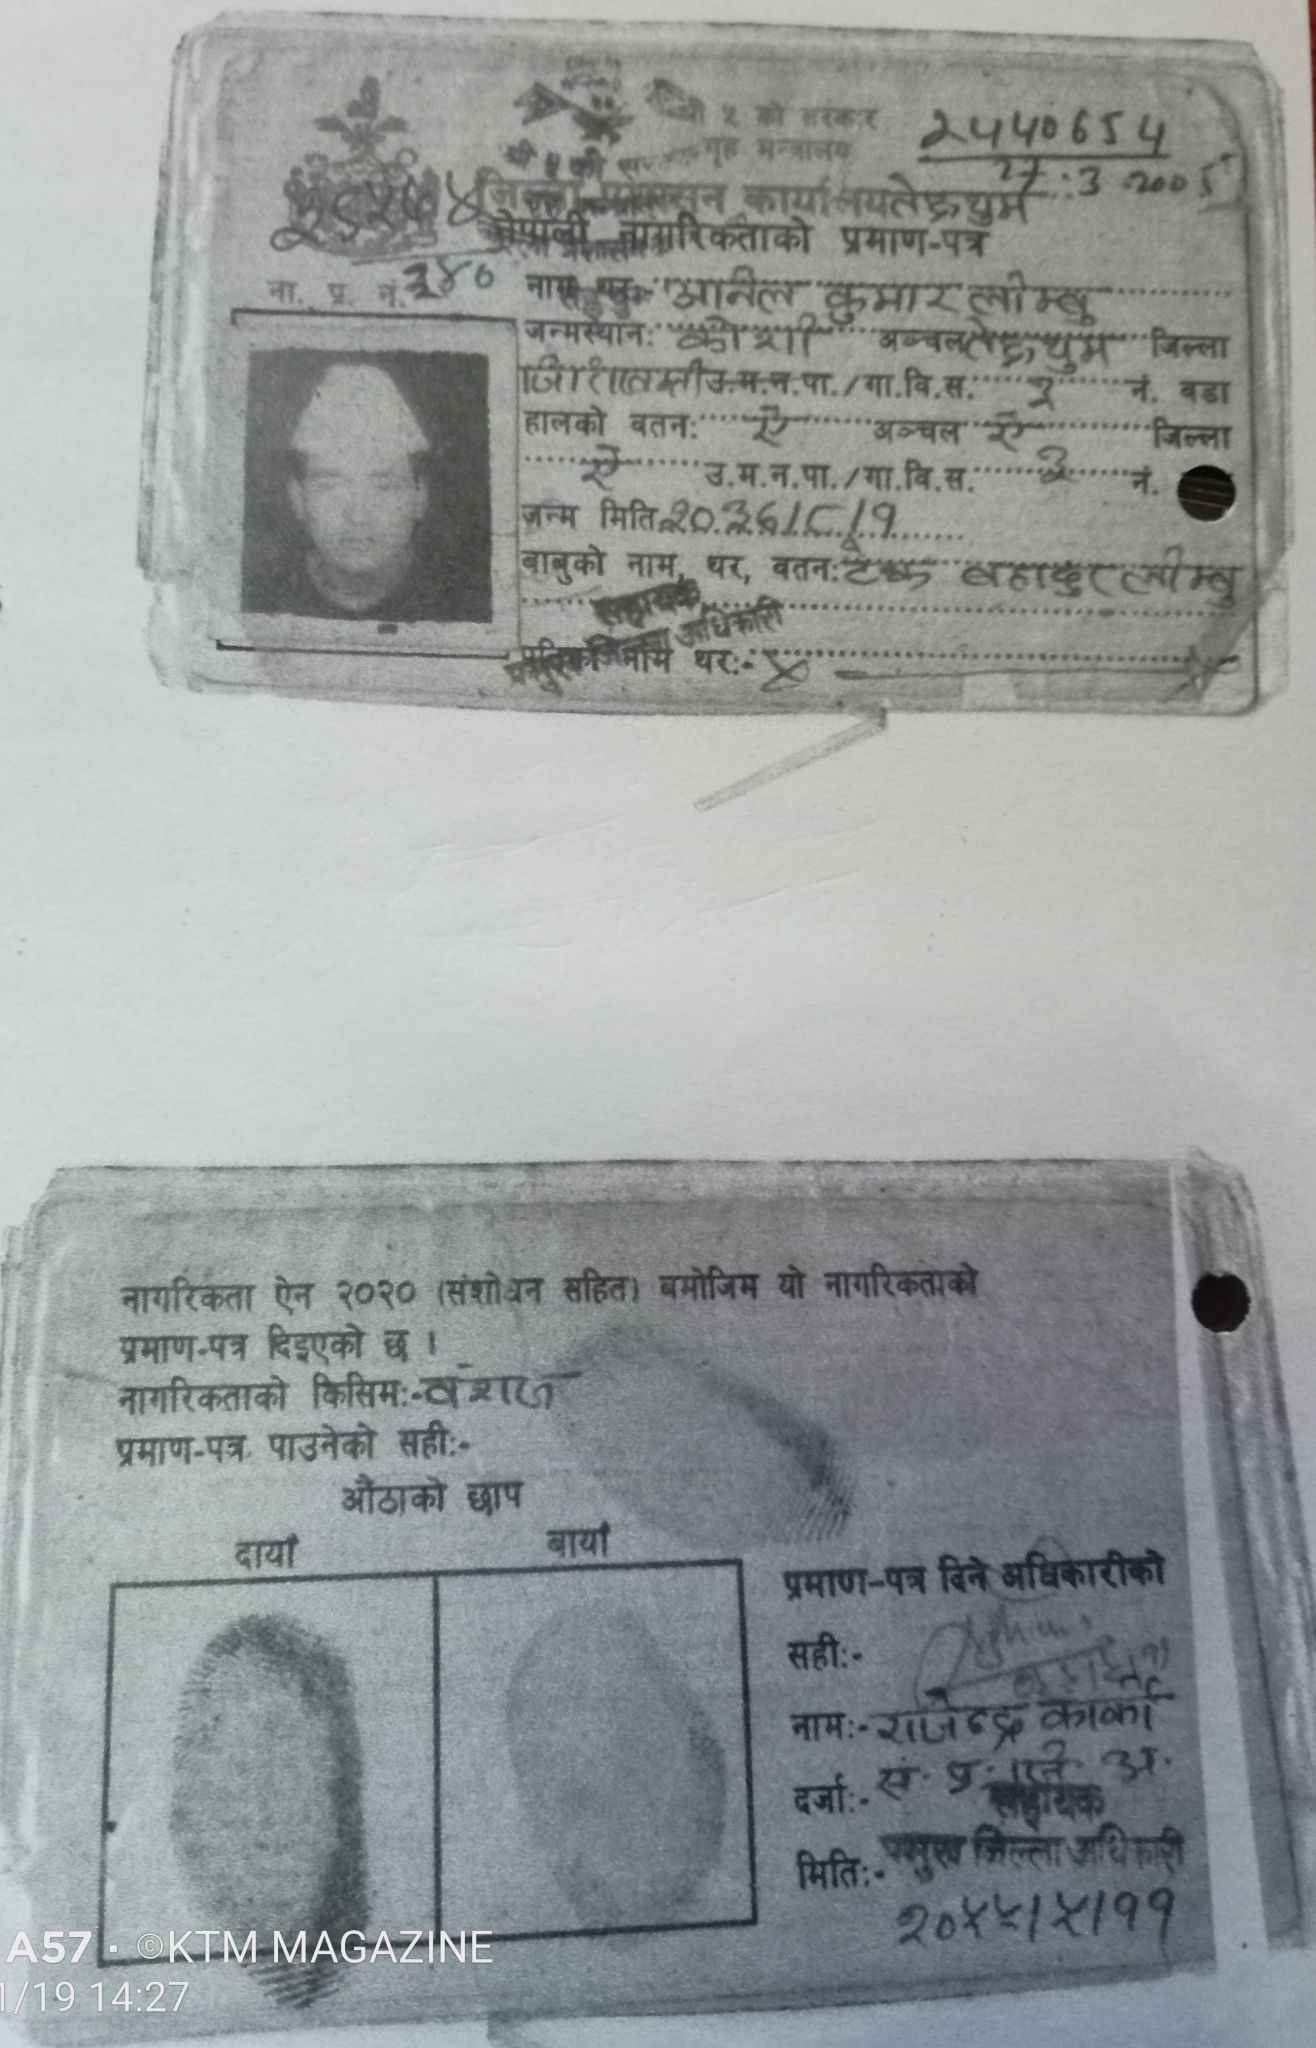 श्री ५ को सरकार
गृह मन्त्रालय
2440654
27.3.2005
जिल्ला प्रशासन कार्यालय तेह्रथुम
नेपाली नागरिकताको प्रमाण-पत्र
ना. प्र. नं. ३४०
नाम थर: अनिल कुमार लिम्बु
जन्मस्थान: कोशी अञ्चल तेह्रथुम जिल्ला
उ.म.न.पा./गा.वि.स. २ नं. वडा
हालको वतन: ऐ अञ्चल ऐ जिल्ला
ऐ उ.म.न.पा./गा.वि.स. २ नं.
जन्म मिति २०३६/८/१
बाबुको नाम, थर, वतन: टेक बहादुर लिम्बु
सहायक
प्रमुख जिल्ला अधिकारी
नाम थर:- X
नागरिकता ऐन २०२० (संशोधन सहित) बमोजिम यो नागरिकताको
प्रमाण-पत्र दिइएको छ ।
नागरिकताको किसिम:- वंशज
प्रमाण-पत्र पाउनेको सही:-
औंठाको छाप
दायाँ बायाँ
प्रमाण-पत्र दिने अधिकारीको
सही:-
नाम:- राजेन्द्र कार्की
दर्जा:- स. प्र. जि. अ.
सहायक
प्रमुख जिल्ला अधिकारी
मिति:- २०५५/५/११
A57 · ©KTM MAGAZINE
1/19 14:27